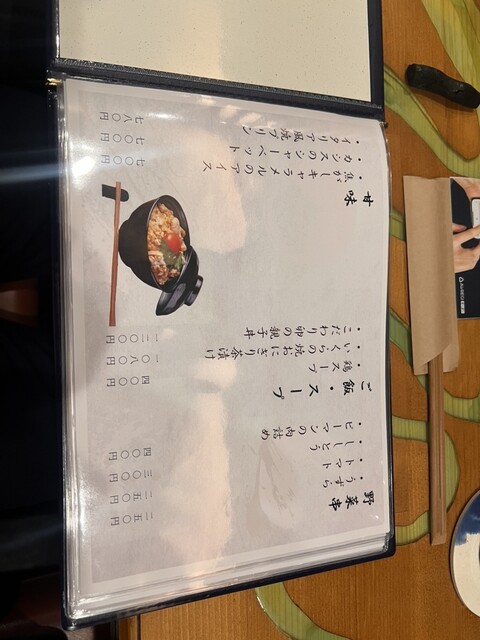 野菜串
・うずら 二五〇円
・トマト 二五〇円
・ししとう 三〇〇円
・ピーマンの肉詰め 四〇〇円
ご飯・スープ
・鶏スープ 四〇〇円
・いくらの焼おにぎり茶漬け 一〇八〇円
・こだわり卵の親子丼 一二〇〇円
甘味
・焦がしキャラメルのアイス 七〇〇円
・カシスのシャーベット 七〇〇円
・イタリア風焼プリン 七八〇円